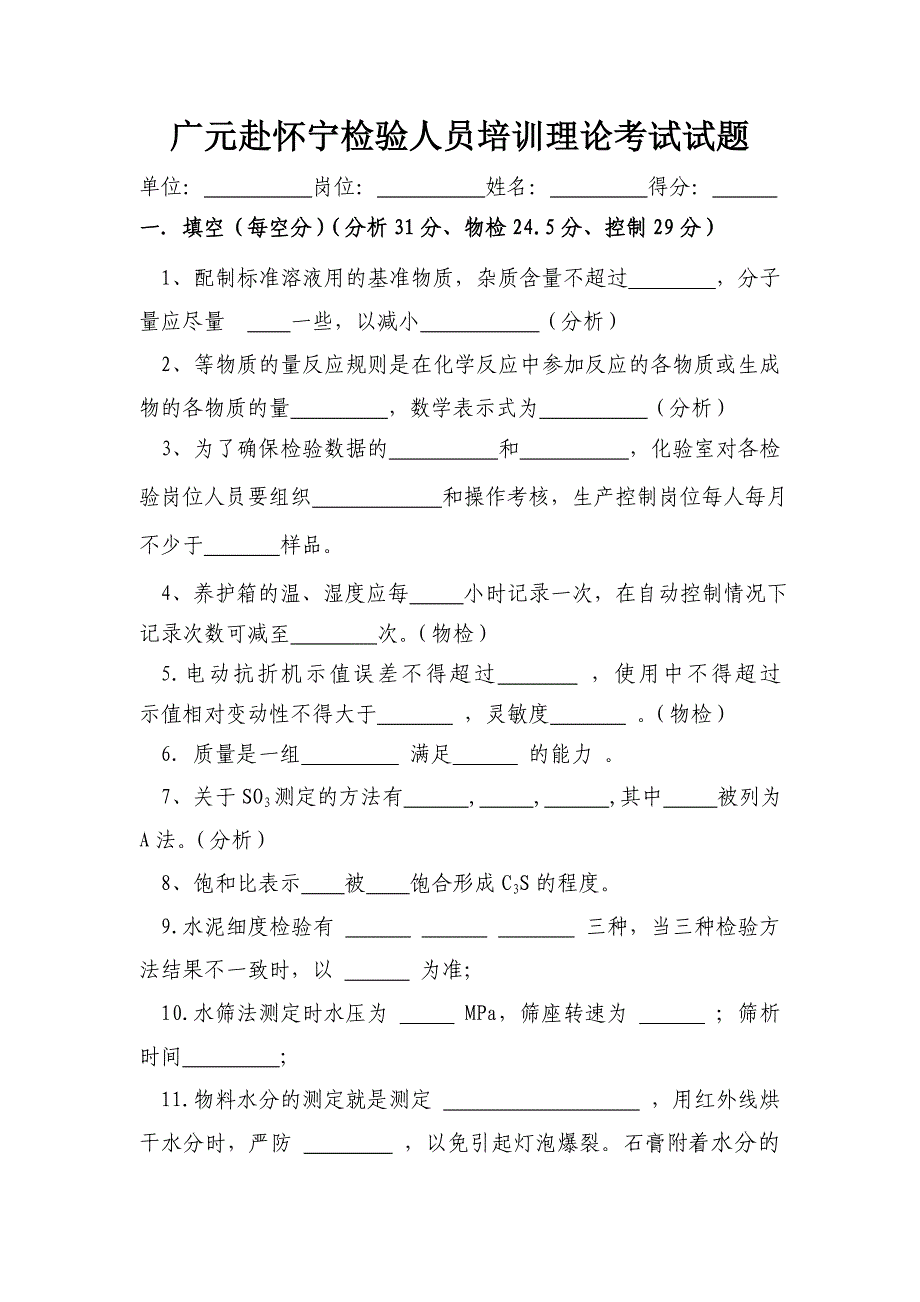 广元赴怀宁检验人员培训理论考试试题
单位：__________岗位：__________姓名：_________得分：______
一. 填空（每空分）（分析31分、物检24.5分、控制29分）
1、配制标准溶液用的基准物质，杂质含量不超过________，分子
量应尽量 ____一些，以减小___________（分析）
2、等物质的量反应规则是在化学反应中参加反应的各物质或生成
物的各物质的量_________，数学表示式为__________（分析）
3、为了确保检验数据的__________和__________，化验室对各检
验岗位人员要组织____________和操作考核，生产控制岗位每人每月
不少于_______样品。
4、养护箱的温、湿度应每_____小时记录一次，在自动控制情况下
记录次数可减至________次。（物检）
5.电动抗折机示值误差不得超过_______ ，使用中不得超过
示值相对变动性不得大于_______ ，灵敏度_______ 。（物检）
6. 质量是一组_________ 满足______ 的能力 。
7、关于SO3测定的方法有______,_____,______,其中_____被列为
A法。（分析）
8、饱和比表示____被____饱合形成C3S的程度。
9.水泥细度检验有 ______ ______ _______ 三种，当三种检验方
法结果不一致时，以 ______ 为准；
10.水筛法测定时水压为 _____ MPa，筛座转速为 ______ ；筛析
时间_________；
11.物料水分的测定就是测定 __________________ ，用红外线烘
干水分时，严防 ________ ，以免引起灯泡爆裂。石膏附着水分的